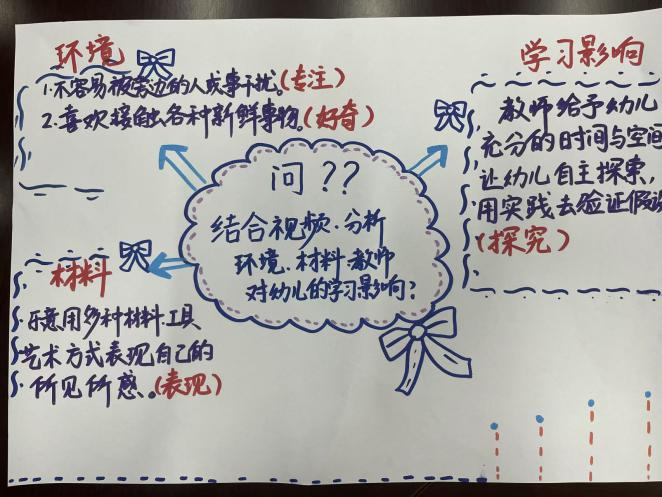 环境
1.不容易被旁边的人或事干扰。(专注)
2.喜欢接触各种新鲜事物。(好奇)
学习影响
教师给予幼儿
充分的时间与空间
让幼儿自主探索,
用实践去验证假设
(探究)
问??
结合视频.分析
环境.材料.教师
对幼儿的学习影响?
材料
乐意用多种材料.工具
艺术方式表现自己的
所见所感。(表现)